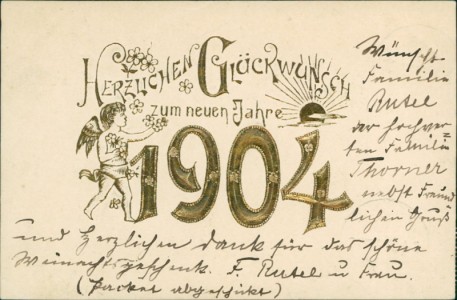 Herzlichen Glückwunsch
zum neuen Jahre
1904
Wünscht
Familie
Rusel
der hochwer-
ten Familie
Thorner
nebst Freund
lichen Gruß
und Herzlichen dank für das schöne
Weinachtsgeschenk. F. Rusel u Frau.
(Packet abgeschikt)